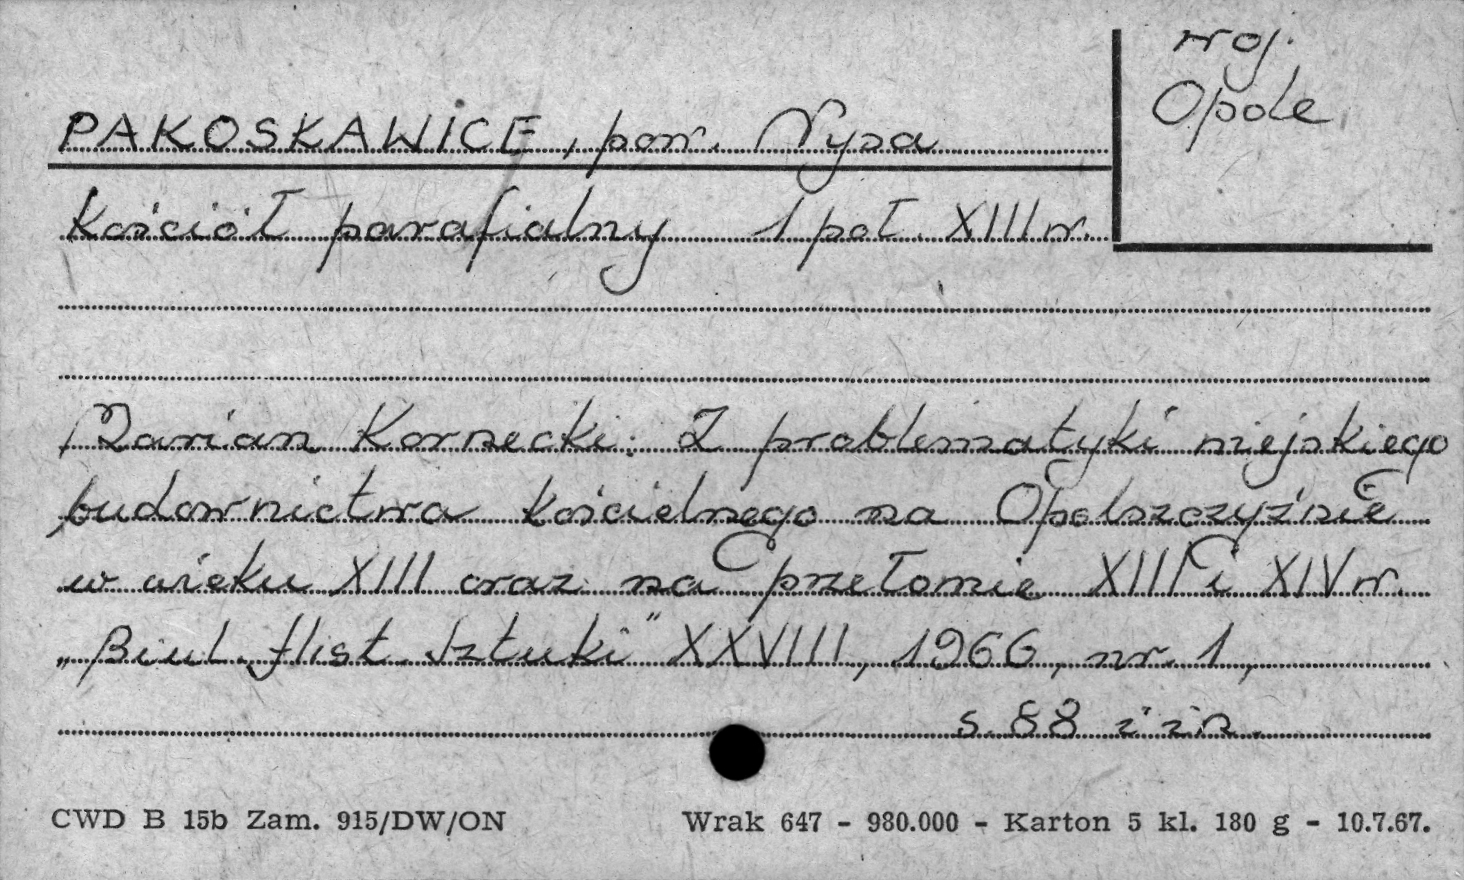 woj.
Opole
PAKOSŁAWICE, pow. Nysa
Kościół parafialny 1 poł. XIII w.
Marian Kornecki: Z problematyki miejskiego
budownictwa kościelnego na Opolszczyźnie
w wieku XIII oraz na przełomie XIII i XIV w.
„Biul. Hist. Sztuki" XXVIII, 1966, nr. 1,
s. 88 i in.
CWD B 15b Zam. 915/DW/ON Wrak 647 - 980.000 - Karton 5 kl. 180 g - 10.7.67.